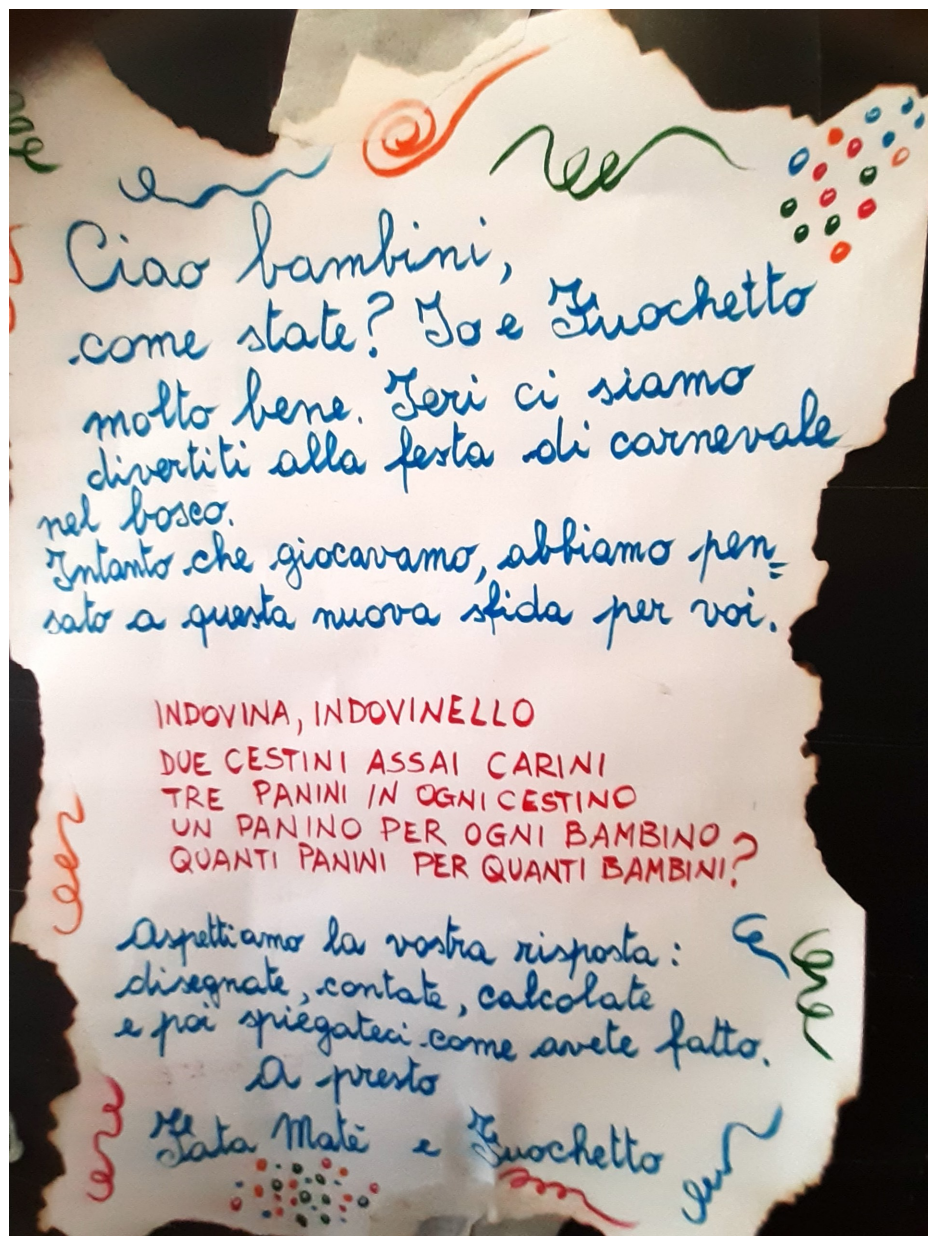 Ciao bambini,
come state? Io e Fuochetto
molto bene. Ieri ci siamo
divertiti alla festa di carnevale
nel bosco.
Intanto che giocavamo, abbiamo pen=
sato a questa nuova sfida per voi.
INDOVINA, INDOVINELLO
DUE CESTINI ASSAI CARINI
TRE PANINI IN OGNI CESTINO
UN PANINO PER OGNI BAMBINO
QUANTI PANINI PER QUANTI BAMBINI?
Aspettiamo la vostra risposta:
disegnate, contate, calcolate
e poi spiegateci come avete fatto.
A presto
Fata Matè e Fuochetto